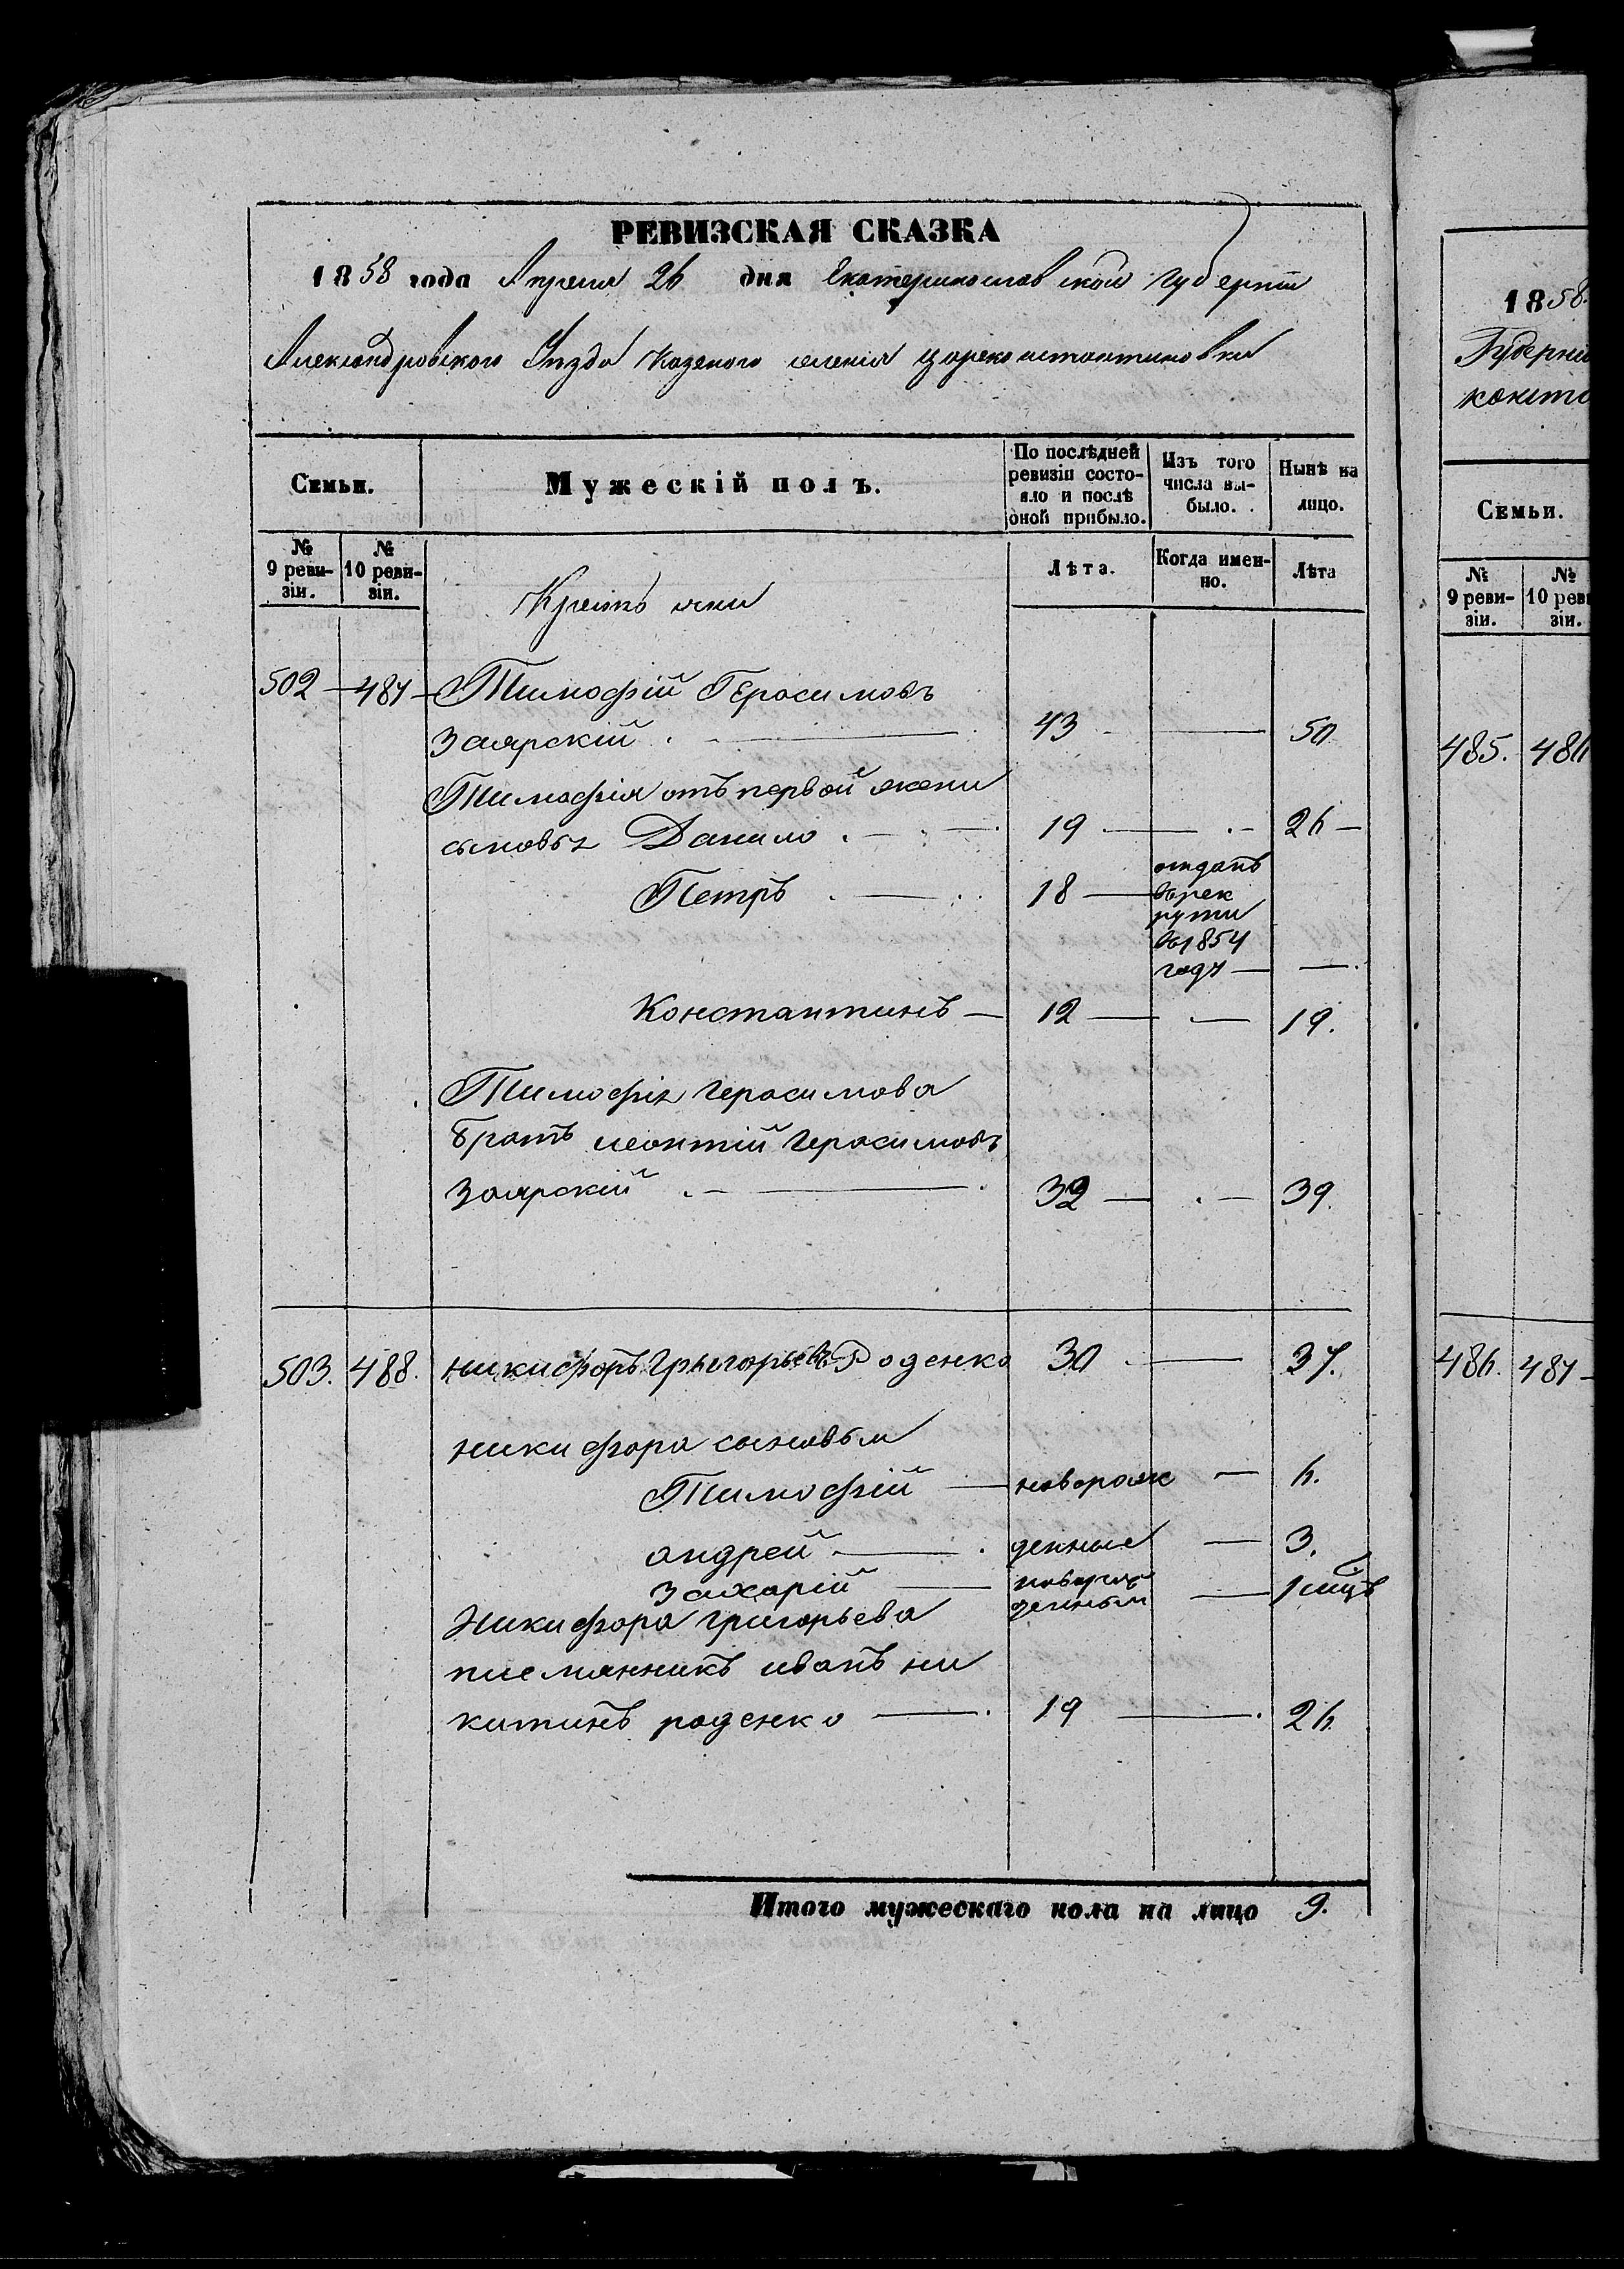 РЕВИЗСКАЯ СКАЗКА
1858 года Апреля 26 дня Екатеринославской губернии
Александровского Уезда Казеного селенія Цареконстантиновки
Семьи.
Мужескій полъ.
По послѣдней ревизіи состо-
яло и послѣ
оной прибыло.
Изъ того
числа вы-
было.
Нынѣ на
лицо.
№
9 реви-
зіи.
№
10 реви-
зіи.
Крестьяни
Лѣта.
Когда имен-
но.
Лѣта
502 — 487 — Тимофій Герасимовъ
Заярскій . — 43 — 50
Тимофія отъ первой жени
сыновья Данило . — 19 — 26 —
Петръ . — 18 — отданъ
въ рек
рути
въ 1854
году — —
Константинъ — 12 — — 19.
Тимофія Герасимова
братъ леонтій Герасимовъ
Заярскій . — 32 — . — 39.
503. 488. никифоръ Григорьевъ Роденко 30 . — 37.
никифора сыновьи
Тимофій — поворож — 6.
андрей — . денные — 3.
Захарій — поворож
денный — 1 мцъ
Никифора григорьева
племянникъ иванъ ни
китинъ роденко — . 19 — . 26
Итого мужескаго пола на лицо 9.
1858
Губерніи
конста
Семьи.
№
9 реви-
зіи.
№
10 реви
зіи.
485. 486
486. 487 —